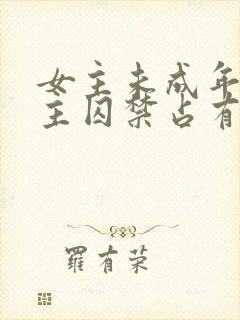 女主未成年
主囚禁占有
羅有荣